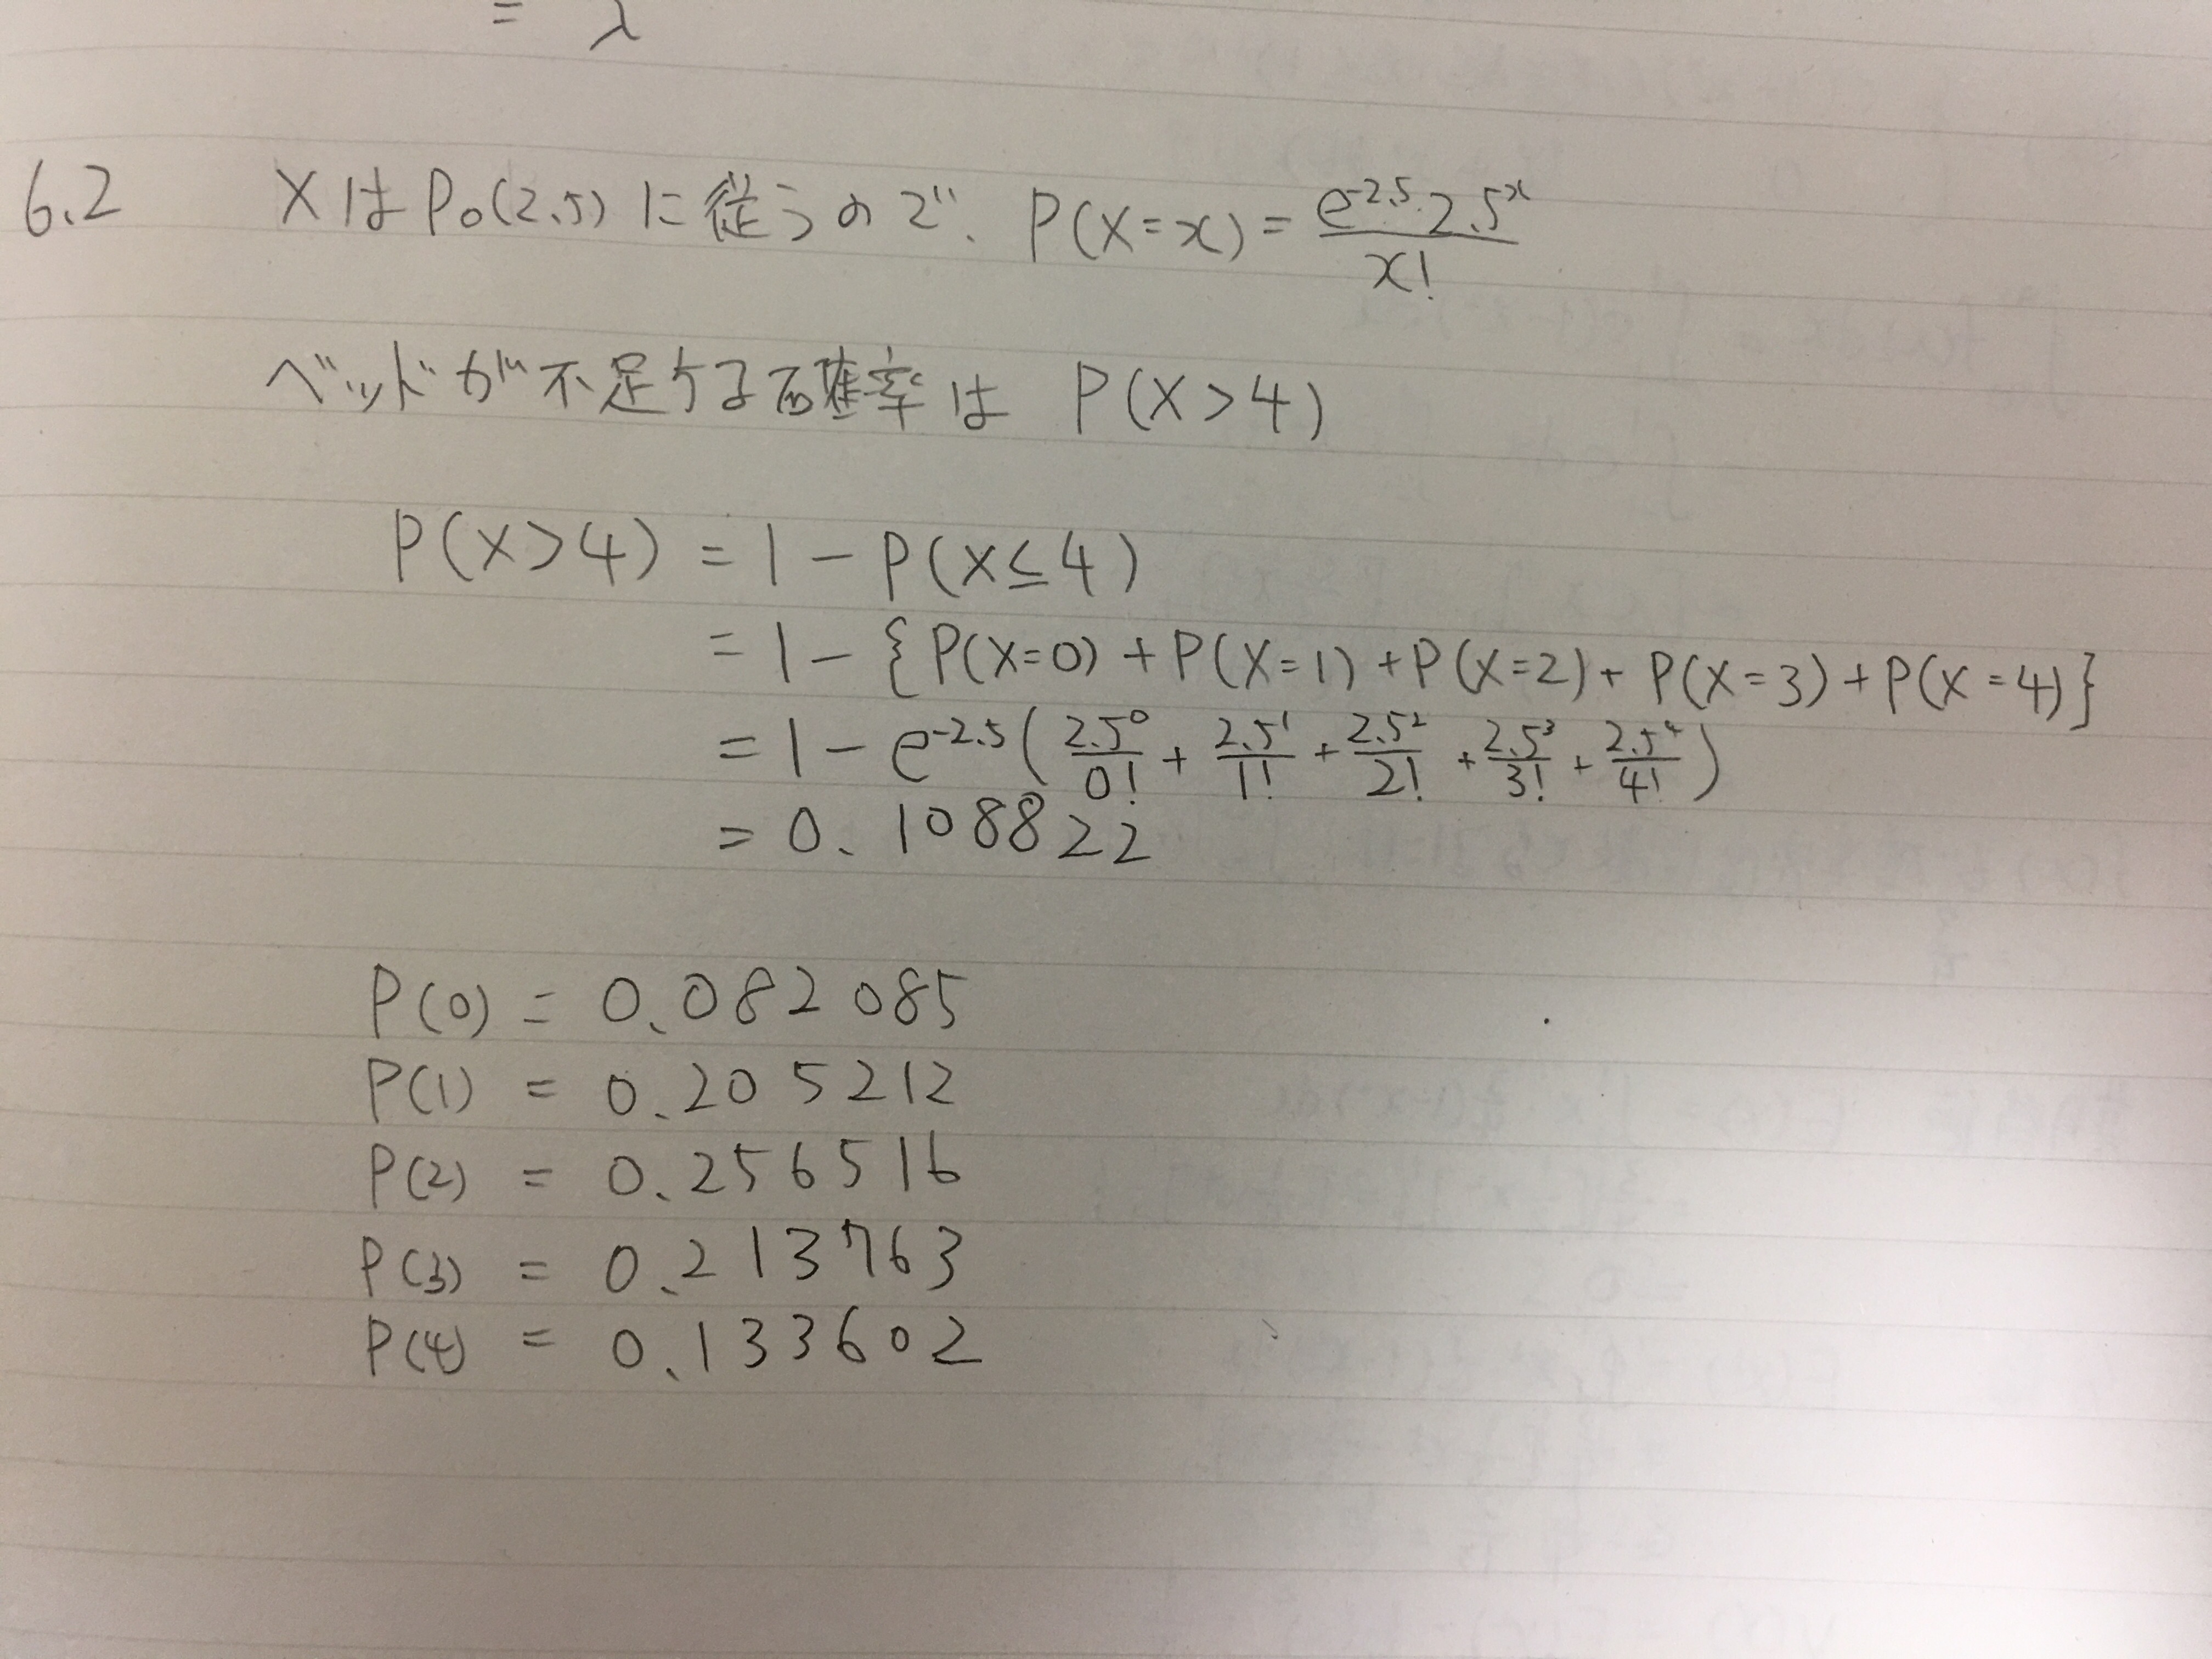 = λ
6.2 XはPo(2.5)に従うので、P(X=x) = e^-2.5 2.5^x / x!
ベッドが不足する確率は P(X>4)
P(X>4) = 1 - P(X≦4)
= 1 - {P(X=0) + P(X=1) + P(X=2) + P(X=3) + P(X=4)}
= 1 - e^-2.5 ( 2.5^0/0! + 2.5^1/1! + 2.5^2/2! + 2.5^3/3! + 2.5^4/4! )
= 0.108822
P(0) = 0.082085
P(1) = 0.205212
P(2) = 0.256516
P(3) = 0.213763
P(4) = 0.133602